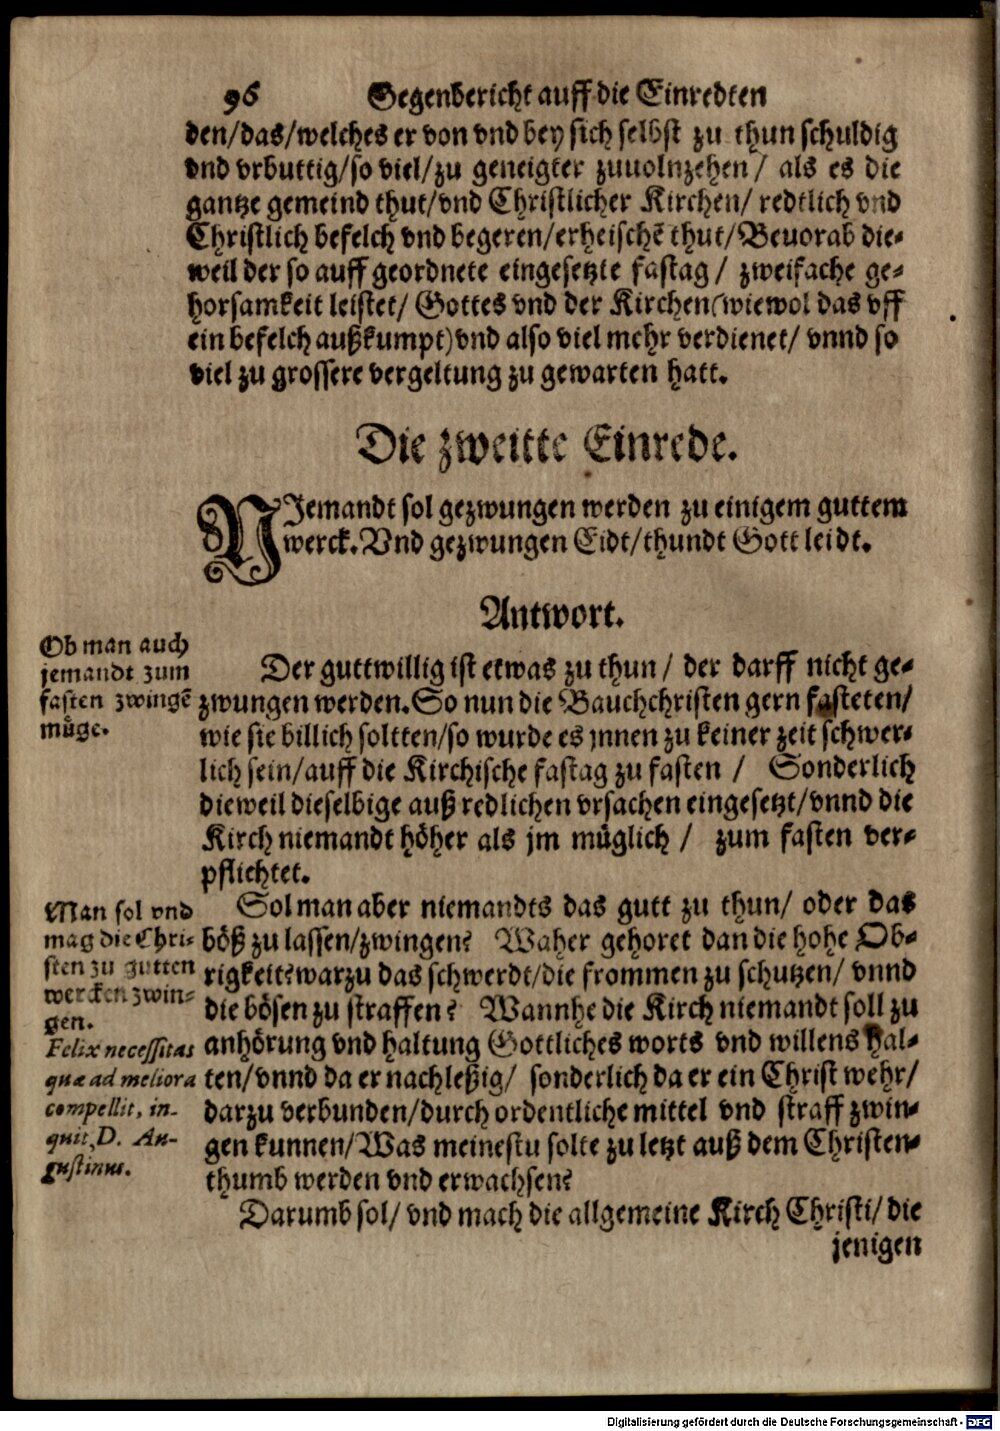 96 Gegenbericht auff die Einredten
den/das/welches er von vnd bey sich selbst zu thun schuldig
vnd vrbuttig/so viel/zu geneigter zuuolnzehen/ als es die
gantze gemeind thut/vnd Christlicher Kirchen/ redtlich vnd
Christlich befelch vnd begeren/erheischẽ thut/Beuorab die-
weil der so auff geordnete eingesetzte fastag/ zweifache ge-
horsamkeit leistet/ Gottes vnd der Kirchen(wiewol das vff
ein befelch außkumpt)vnd also viel mehr verdienet/ vnnd so
viel zu grossere vergeltung zu gewarten hatt.
Die zweitte Einrede.
NIemandt sol gezwungen werden zu einigem guttem
werck. Vnd gezwungen Eidt/thundt Gott leidt.
Antwort.
Ob man auch
jemandt zum
fasten zwingẽ
müge.
Der guttwillig ist etwas zu thun/ der darff nicht ge-
zwungen werden. So nun die Bauchchristen gern fasteten/
wie sie billich soltten/so wurde es jnnen zu keiner zeit schwer-
lich sein/auff die Kirchische fastag zu fasten/ Sonderlich
dieweil dieselbige auß redlichen vrsachen eingesetzt/vnnd die
Kirch niemandt höher als jm müglich/ zum fasten ver-
pflichtet.
Man sol vnd
mag die Chri-
sten zu gutten
wercken zwin-
gen.
Felix necessitas
quæ ad meliora
compellit, in-
quit, D. Au-
gustinus.
Sol man aber niemandts das gutt zu thun/ oder das
böß zu lassen/zwingen? Waher gehoret dan die hohe Ob-
rigkeit? warzu das schwerdt/die frommen zu schutzen/ vnnd
die bösen zu straffen? Wannhe die Kirch niemandt soll zu
anhörung vnd haltung Gottliches worts vnd willens hal-
ten/vnnd da er nachleßig/ sonderlich da er ein Christ wehr/
darzu verbunden/durch ordentliche mittel vnd straff zwin-
gen kunnen/Was meinestu solte zu letzt auß dem Christen-
thumb werden vnd erwachsen?
Darumb sol/ vnd mach die allgemeine Kirch Christi/ die
jenigen
Digitalisierung gefördert durch die Deutsche Forschungsgemeinschaft - DFG